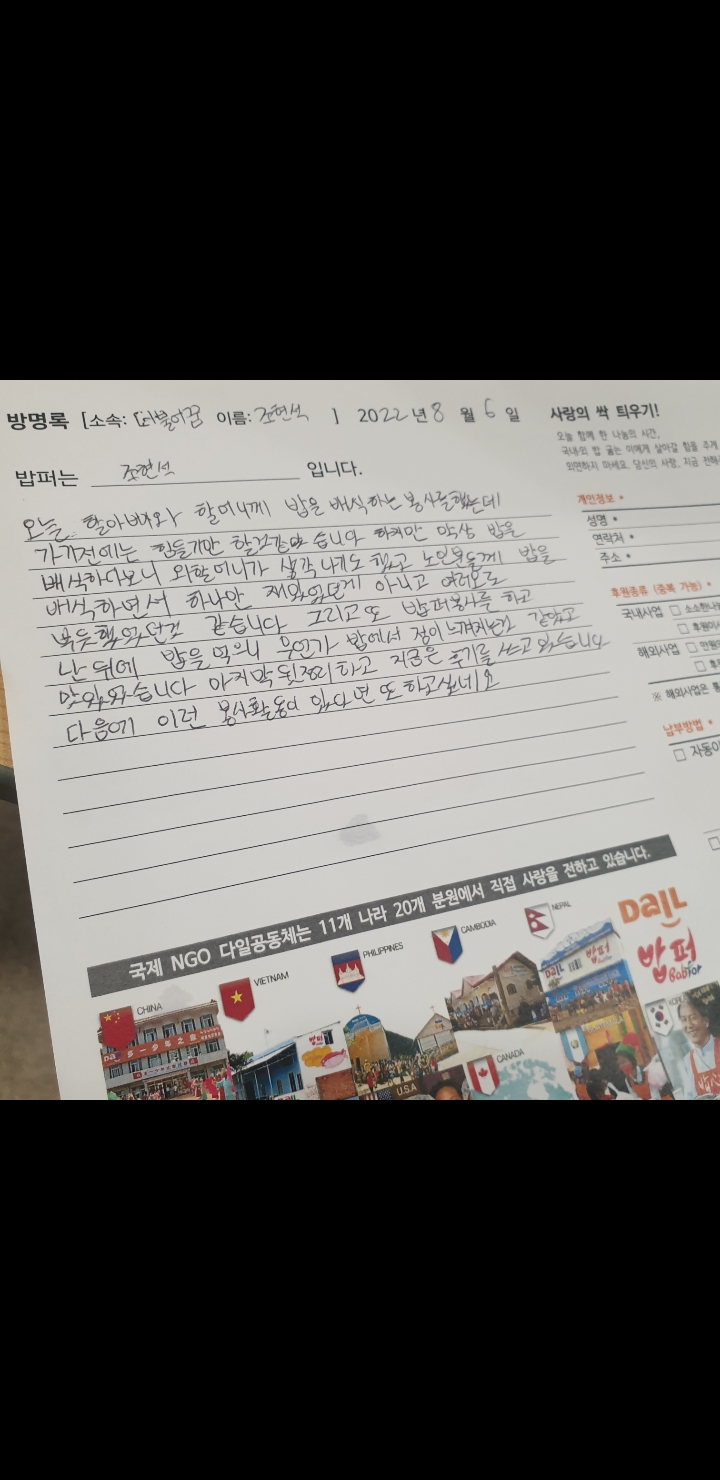 방명록 [소속: 더불어꿈 이름: 조현석 ] 2022년 8 월 6 일
밥퍼는 조현석 입니다.
오늘 할아버지와 할머니께 밥을 배식하는 봉사를 했는데
가기전에는 힘들기만 할것같았습니다 하지만 막상 밥을
배식하다보니 외할머니가 생각나기도 했고 노인분들께 밥을
배식하면서 하나만 재밌었던게 아니고 여러모로
뿌듯했었던것 같습니다 그리고 또 밥퍼봉사를 하고
난 뒤에 밥을 먹으니 무언가 밥에서 정이 느껴지는것 같았고
맛있었습니다 마지막 뒷정리하고 지금은 후기를 쓰고 있습니다
다음에 이런 봉사활동이 있다면 또 하고싶네요
사랑의 싹 틔우기!
오늘 함께 한 나눔의 시간,
국내외 밥 굶는 이에게 살아갈 힘을 주게
외면하지 마세요. 당신의 사랑, 지금 전해
개인정보 •
성명 •
연락처 •
주소 •
후원종류 (중복 가능) •
국내사업 □ 소소한나
□ 후원이
해외사업 □ 만원
□ 후
※ 해외사업은
납부방법 •
□ 자동이
국제 NGO 다일공동체는 11개 나라 20개 분원에서 직접 사랑을 전하고 있습니다.
CHINA
VIETNAM
PHILIPPINES
CAMBODIA
NEPAL
DaiL
밥퍼
Babfor
U.S.A
CANADA